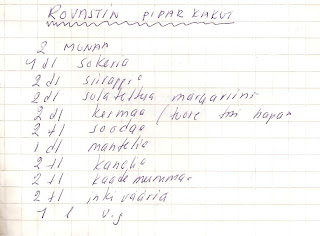 ROVASTIN PIPARKAKUT
2 MUNAA
4 dl sokeria
2 dl siirappia
2 dl sulatettua margariinia
2 dl kermaa (tuore tai hapan
2 tl soodaa
1 dl mantelia
2 tl kanelia
2 tl kaardemummaa
2 tl inkivääria
1 l v.j